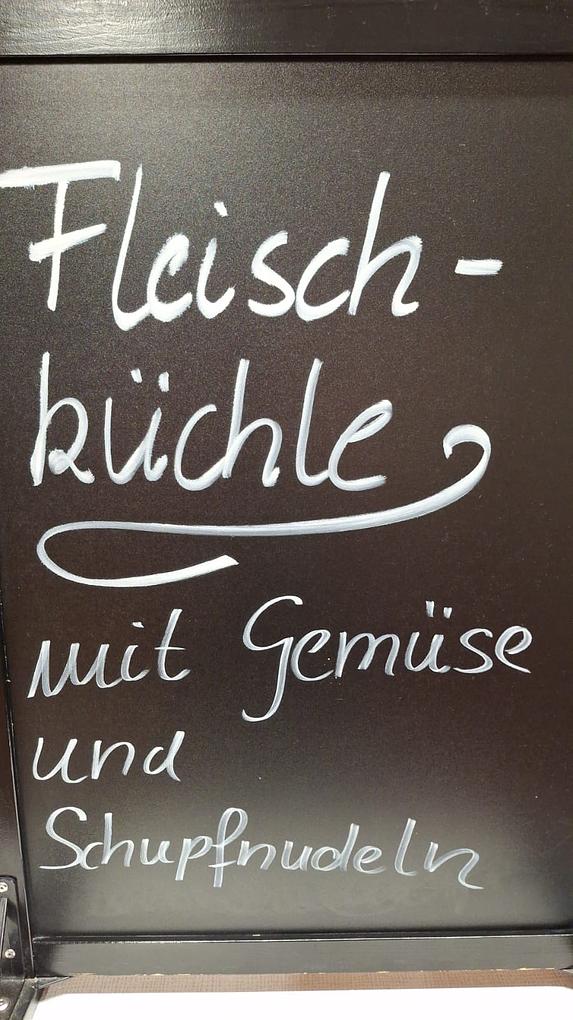 Fleisch-
küchle
mit Gemüse
und
Schupfnudeln